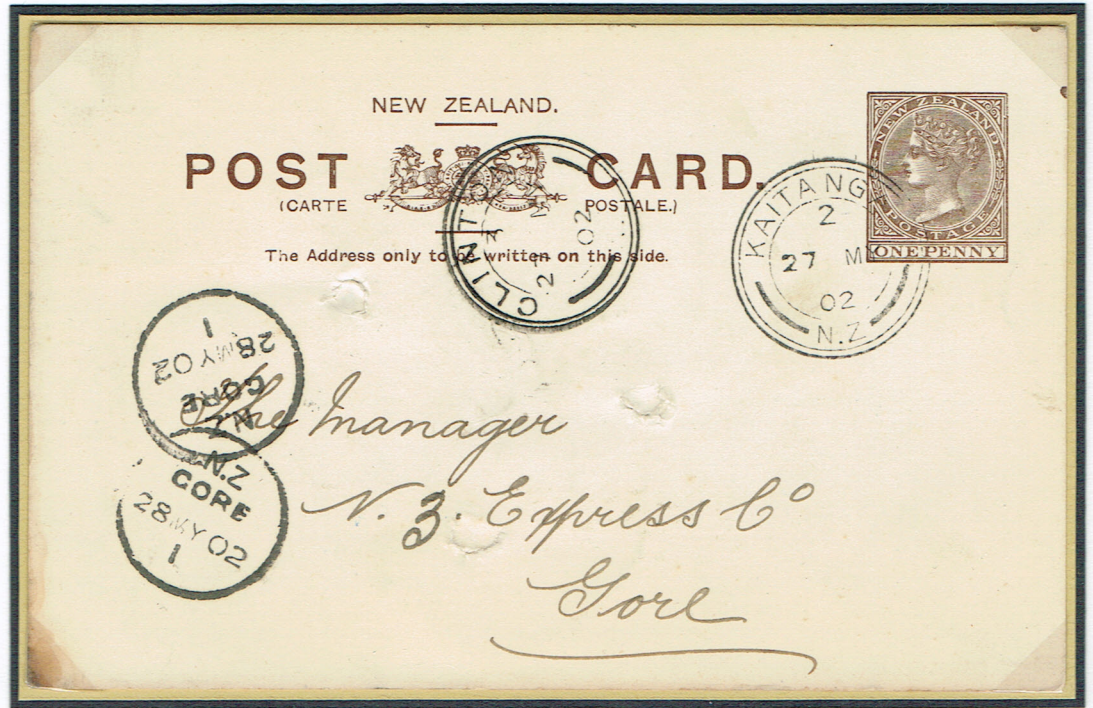 NEW ZEALAND.
POST CARD.
(CARTE POSTALE.)
The Address only to be written on this side.
NEW ZEALAND
POSTAGE
ONE PENNY
CLINTON
02
KAITANGA
2
27 MY
02
N.Z
1
28 MY 02
GORE
N.Z
N.Z
GORE
28 MY 02
1
The Manager
N. Z. Express Co
Gore